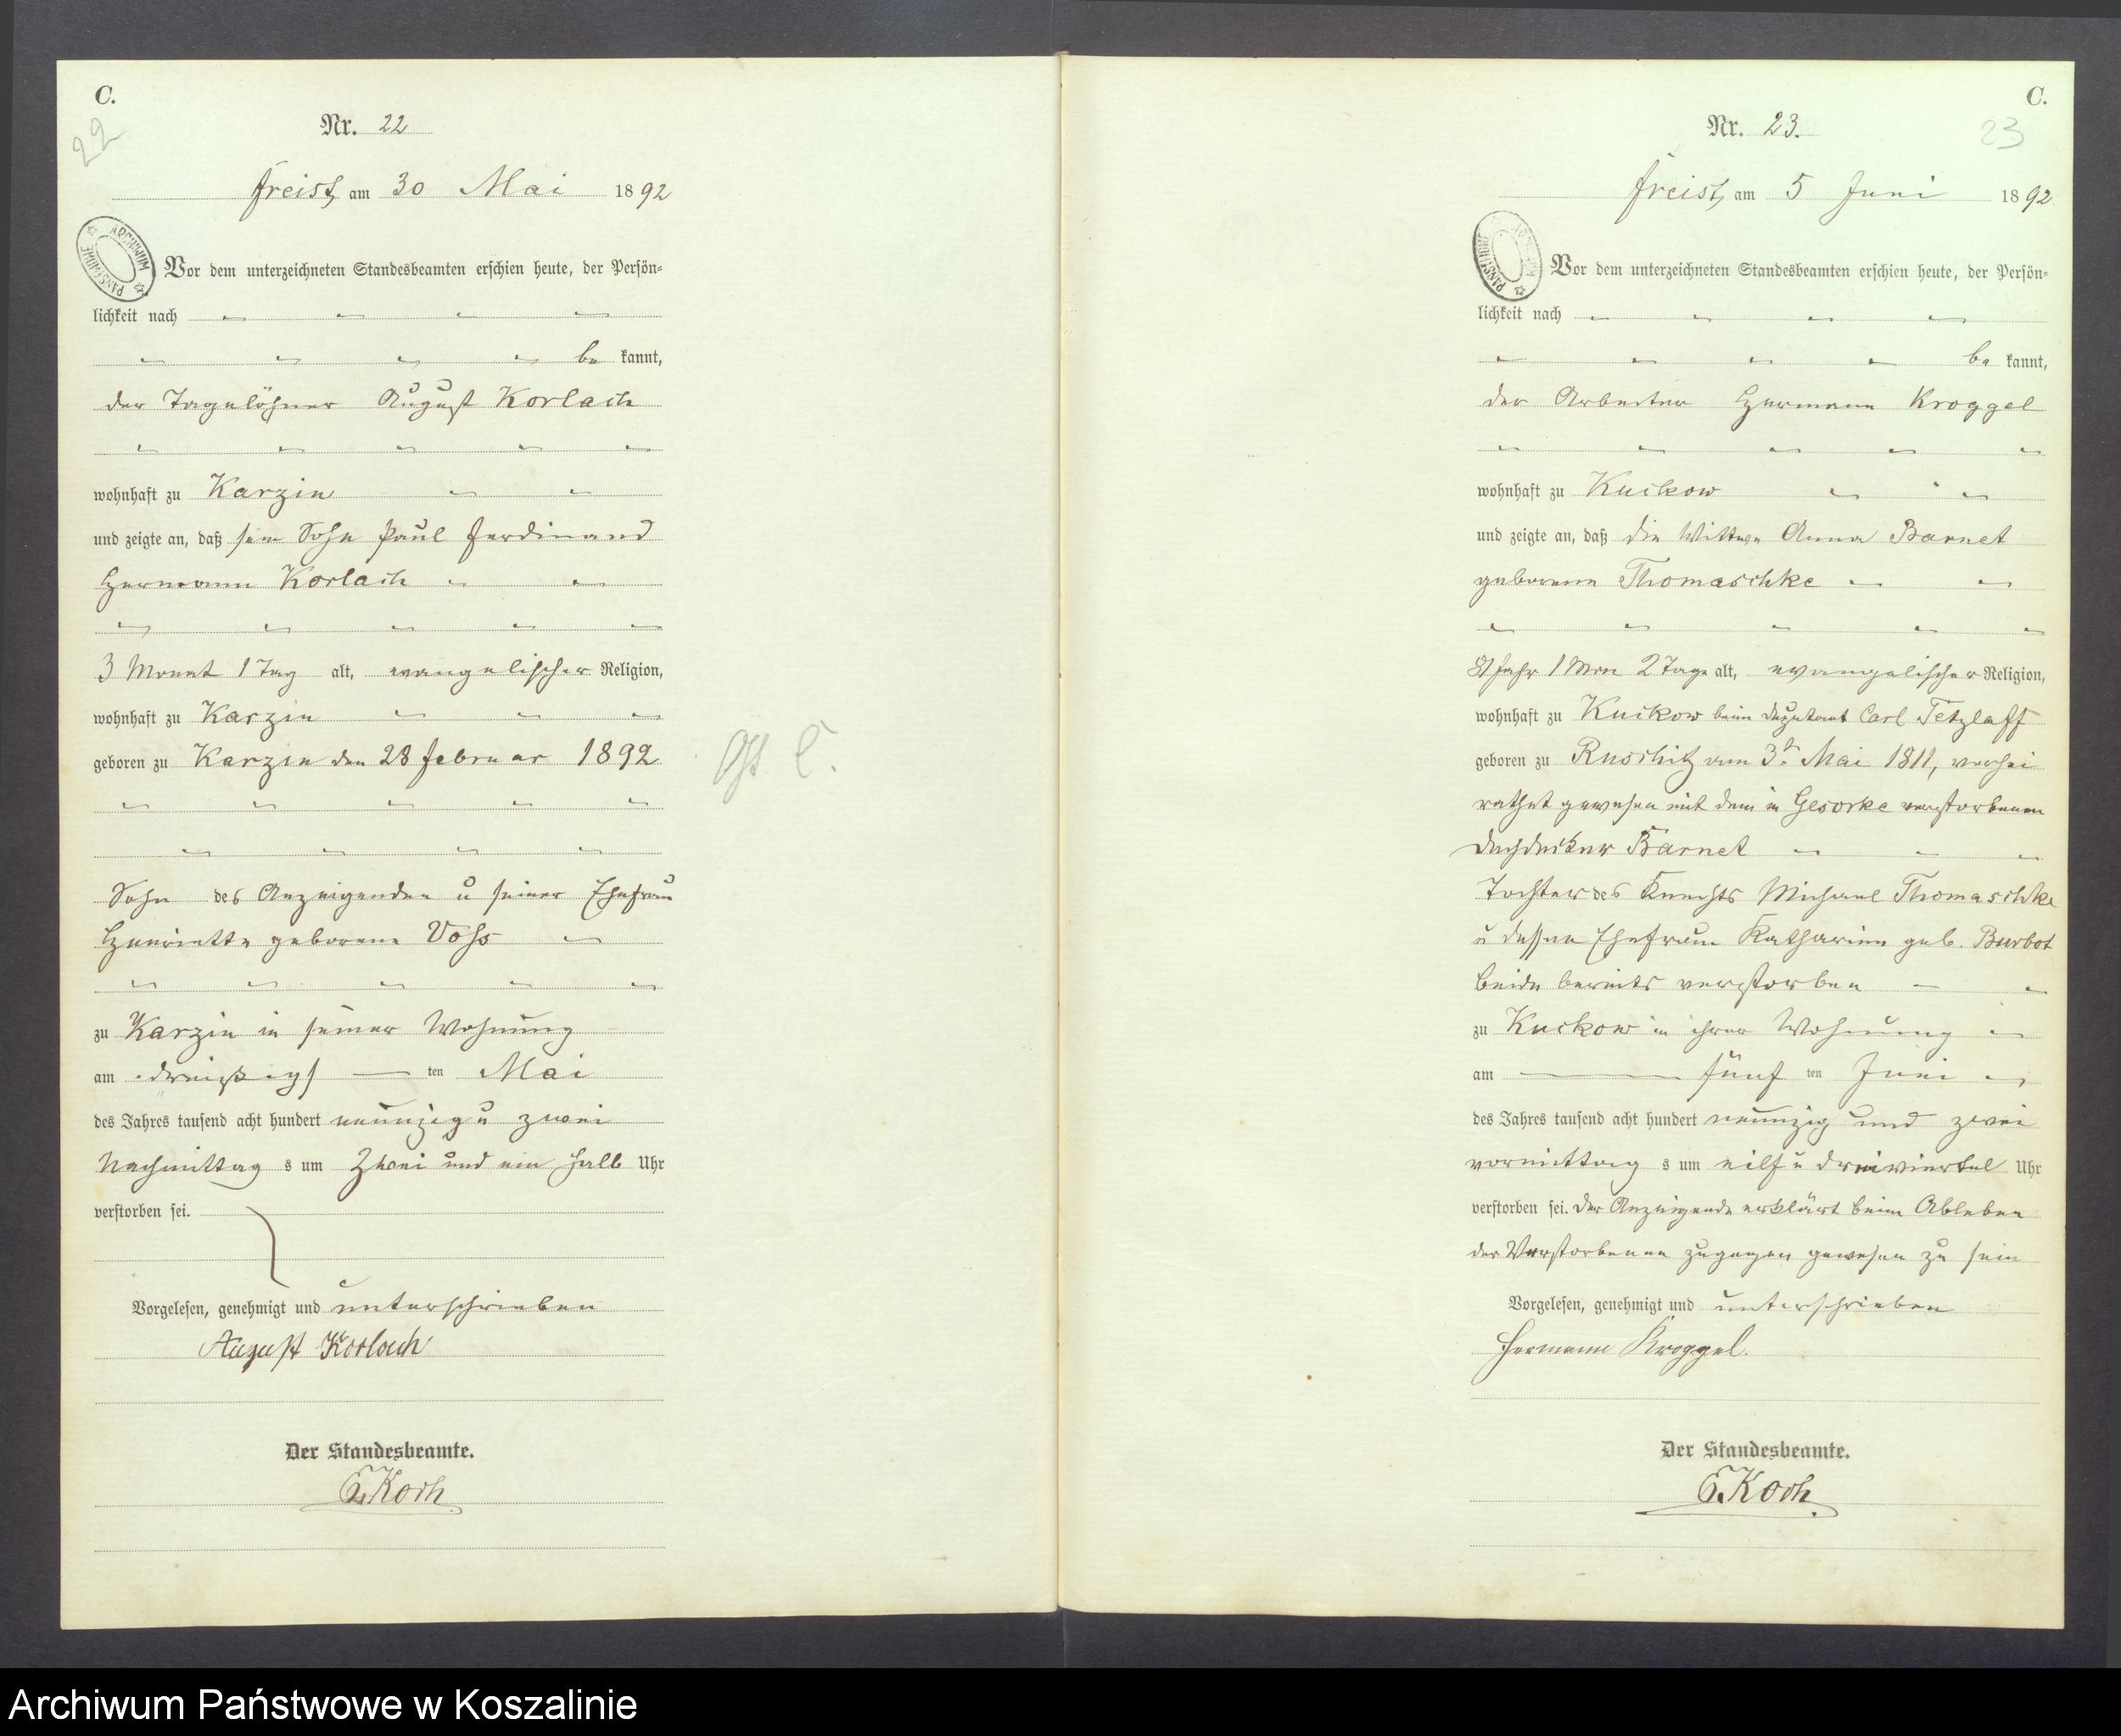 C.
22
Nr. 22
Freist, am 30 Mai 1892
ARCHIWUM PAŃSTWOWE
Vor dem unterzeichneten Standesbeamten erschien heute, der Persön-
lichkeit nach
be kannt,
der Tagelöhner August Korlach
wohnhaft zu Karzin
und zeigte an, daß sein Sohn Paul Ferdinand
Hermann Korlach
3 Monat 1 Tag alt, evangelischer Religion,
wohnhaft zu Karzin
geboren zu Karzin den 28 Februar 1892
Sohn des Anzeigenden u seiner Ehefrau
Henriette geborene Voss
zu Karzin in seiner Wohnung
am dreißigs ten Mai
des Jahres tausend acht hundert neunzig u zwei
Nachmittag s um Zwei und ein halb Uhr
verstorben sei.
Vorgelesen, genehmigt und unterschrieben
August Korlach
Der Standesbeamte.
E. Koch
C.
23
Nr. 23.
Freist, am 5 Juni 1892
ARCHIWUM PAŃSTWOWE
Vor dem unterzeichneten Standesbeamten erschien heute, der Persön-
lichkeit nach
be kannt,
der Arbeiter Hermann Kroggel
wohnhaft zu Kuckow
und zeigte an, daß die Wittwe Anna Barnet
geborene Thomaschke
81 Jahr 1 Mon 2 Tage alt, evangelischer Religion,
wohnhaft zu Kuckow beim Deputant Carl Tetzlaff
geboren zu Ruschitz am 3t. Mai 1811, verhei
rathet gewesen mit dem in Gesorke verstorbenen
Dachdecker Barnet
Tochter des Knechts Michael Thomaschke
u dessen Ehefrau Katharine geb. Burbot
beide bereits verstorben
zu Kuckow in ihrer Wohnung
am fünf ten Juni
des Jahres tausend acht hundert neunzig und zwei
vormittag s um eilf u dreiviertel Uhr
verstorben sei. Der Anzeigende erklärt beim Ableben
der Verstorbenen zugegen gewesen zu sein
Vorgelesen, genehmigt und unterschrieben
Hermann Kroggel.
Der Standesbeamte.
E. Koch
Archiwum Państwowe w Koszalinie